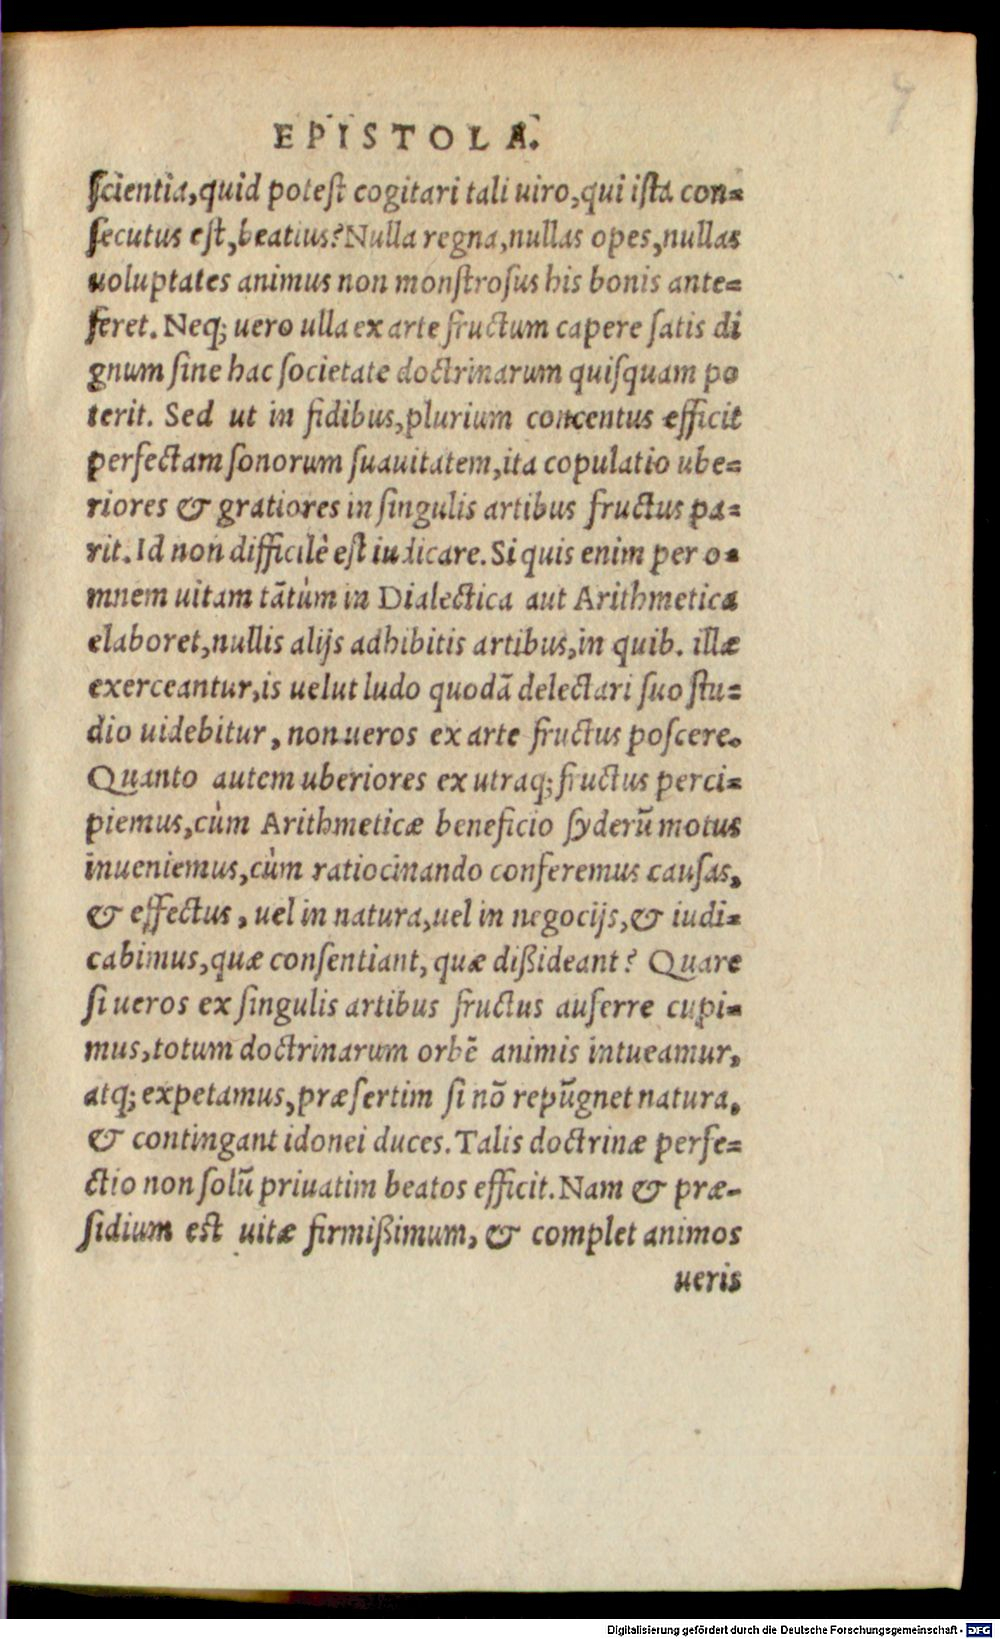 7
EPISTOLA.
scientia, quid potest cogitari tali uiro, qui ista con-
secutus est, beatius? Nulla regna, nullas opes, nullas
uoluptates animus non monstrosus his bonis ante-
feret. Neq; uero ulla ex arte fructum capere satis di
gnum sine hac societate doctrinarum quisquam po
terit. Sed ut in fidibus, plurium concentus efficit
perfectam sonorum suauitatem, ita copulatio ube-
riores & gratiores in singulis artibus fructus pa-
rit. Id non difficilè est iudicare. Si quis enim per o-
mnem uitam tātùm in Dialectica aut Arithmetica
elaboret, nullis alijs adhibitis artibus, in quib. illæ
exerceantur, is uelut ludo quodā delectari suo stu-
dio uidebitur, non ueros ex arte fructus poscere.
Quanto autem uberiores ex utraq; fructus perci-
piemus, cùm Arithmeticæ beneficio syderū motus
inueniemus, cùm ratiocinando conferemus causas,
& effectus, uel in natura, uel in negocijs, & iudi-
cabimus, quæ consentiant, quæ dißideant? Quare
si ueros ex singulis artibus fructus auferre cupi-
mus, totum doctrinarum orbē animis intueamur,
atq; expetamus, præsertim si nō repūgnet natura,
& contingant idonei duces. Talis doctrinæ perfe-
ctio non solū priuatim beatos efficit. Nam & præ-
sidium est uitæ firmißimum, & complet animos
ueris
Digitalisierung gefördert durch die Deutsche Forschungsgemeinschaft - DFG